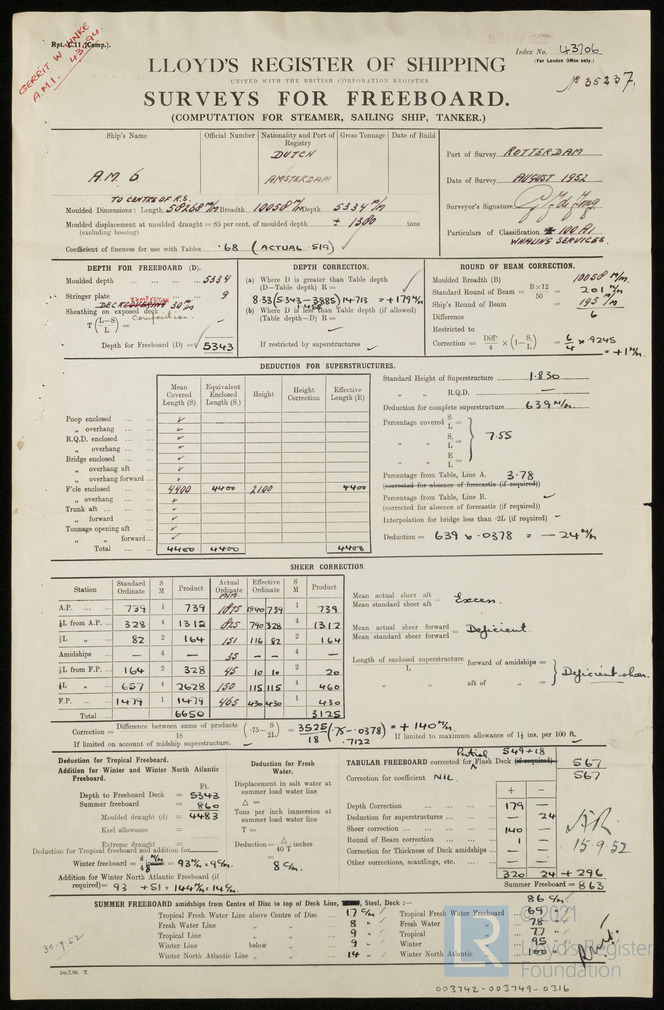 Rpt. C.11 (Comp.).
GERRIT W VINKE
A.M.I. 4.3.94.
Index No. 43706
(For London Office only.)
No 35237.
LLOYD'S REGISTER OF SHIPPING
UNITED WITH THE BRITISH CORPORATION REGISTER
SURVEYS FOR FREEBOARD.
(COMPUTATION FOR STEAMER, SAILING SHIP, TANKER.)
Ship's Name Official Number Nationality and Port of Registry Gross Tonnage Date of Build
A.M. 6 DUTCH
AMSTERDAM
Port of Survey ROTTERDAM
Date of Survey AUGUST 1952
Surveyor's Signature
Particulars of Classification 100 A1
WHALING SERVICES.
TO CENTRE OF R.S.
Moulded Dimensions: Length 58268 m/m Breadth 10058 m/m Depth 5334 m/m
Moulded displacement at moulded draught = 85 per cent. of moulded depth ± 1380 tons
(excluding bossing)
Coefficient of fineness for use with Tables .68 (ACTUAL .519)
DEPTH FOR FREEBOARD (D).
Moulded depth 5334
Stringer plate 9
Sheathing on exposed deck 30 m/m
Composition
T (L-S/L) =
Depth for Freeboard (D) = 5343
DEPTH CORRECTION.
(a) Where D is greater than Table depth
(D-Table depth) R =
8.33 (5.343-3.885) 14.713 = +179 m/m
1.458
(b) Where D is less than Table depth (if allowed)
(Table depth-D) R =
If restricted by superstructures
ROUND OF BEAM CORRECTION.
Moulded Breadth (B) 10058 m/m
Standard Round of Beam = B×12/50 = 201 m/m
Ship's Round of Beam = 195 m/m
Difference 6
Restricted to
Correction = Diff/4 × (1-S/L) = 6/4 × .9245
= +1 m/m.
DEDUCTION FOR SUPERSTRUCTURES.
Mean Covered Length (S) Equivalent Enclosed Length (S₁) Height Height Correction Effective Length (E)
Poop enclosed
„ overhang
R.Q.D. enclosed
„ overhang
Bridge enclosed
„ overhang aft
„ overhang forward
F'cle enclosed 4400 4400 2100 4400
„ overhang
Trunk aft
„ forward
Tonnage opening aft
„ „ forward
Total 4400 4400 4400
Standard Height of Superstructure 1.830
„ „ R.Q.D. —
Deduction for complete superstructure 639 m/m.
Percentage covered S/L =
„ „ S₁/L = 7.55
„ „ E/L =
Percentage from Table, Line A. 3.78
(corrected for absence of forecastle (if required))
Percentage from Table, Line B.
(corrected for absence of forecastle (if required))
Interpolation for bridge less than .2L (if required)
Deduction = 639 × .0378 = -24 m/m
SHEER CORRECTION.
Station Standard Ordinate S M Product Actual Ordinate Effective Ordinate S M Product
A.P. 739 1 739 1875 1840 739 1 739
⅙L from A.P. 328 4 1312 825 790 328 4 1312
⅓L „ 82 2 164 151 116 82 2 164
Amidships — 4 — 35 — — 4 —
⅓L from F.P. 164 2 328 45 10 10 2 20
⅙L „ 657 4 2628 150 115 115 4 460
F.P. 1479 1 1479 465 430 430 1 430
Total 6650 3125
Mean actual sheer aft / Mean standard sheer aft = Excess.
Mean actual sheer forward / Mean standard sheer forward = Deficient.
Length of enclosed superstructure / L forward of amidships =
„ „ aft of „ = Deficient sheer.
Correction = Difference between sums of products / 18 (.75- S/2L) = 3525/18 (.75-.0378) = +140 m/m.
.7122
If limited on account of midship superstructure.
If limited to maximum allowance of 1½ ins. per 100 ft.
Deduction for Tropical Freeboard.
Addition for Winter and Winter North Atlantic Freeboard.
Ft.
Depth to Freeboard Deck = 5343
Summer freeboard = 860
Moulded draught (d) = 4483
Keel allowance =
Extreme draught =
Deduction for Tropical freeboard and addition for
Winter freeboard = d/48 = 93 m/m = 9 c/m.
Addition for Winter North Atlantic Freeboard (if
required) = 93 + 51 = 144 m/m = 14 c/m.
Deduction for Fresh Water.
Displacement in salt water at summer load water line
Δ =
Tons per inch immersion at summer load water line
T =
Deduction = Δ/40 T inches
=
8 c/m.
Partial 549+18
TABULAR FREEBOARD corrected for Flush Deck (if required) 567
Correction for coefficient NIL. 567
+ -
Depth Correction 179 —
Deduction for superstructures — 24
Sheer correction 140 —
Round of Beam correction 1 —
Correction for Thickness of Deck amidships — —
Other corrections, scantlings, etc. — —
320 24 + 296
Summer Freeboard = 863
15.9.52
SUMMER FREEBOARD amidships from Centre of Disc to top of Deck Line, Steel, Deck :— 86 c/m
Tropical Fresh Water Line above Centre of Disc 17 c/m Tropical Fresh Water Freeboard 69
Fresh Water Line „ „ 8 „ Fresh Water „ 78
Tropical Line „ „ 9 „ Tropical „ 77
Winter Line below „ 9 „ Winter „ 95
Winter North Atlantic Line „ „ 14 „ Winter North Atlantic „ 100
30.9.52
© 2021
LR
Lloyd's Register
Foundation
003742-003749-0316